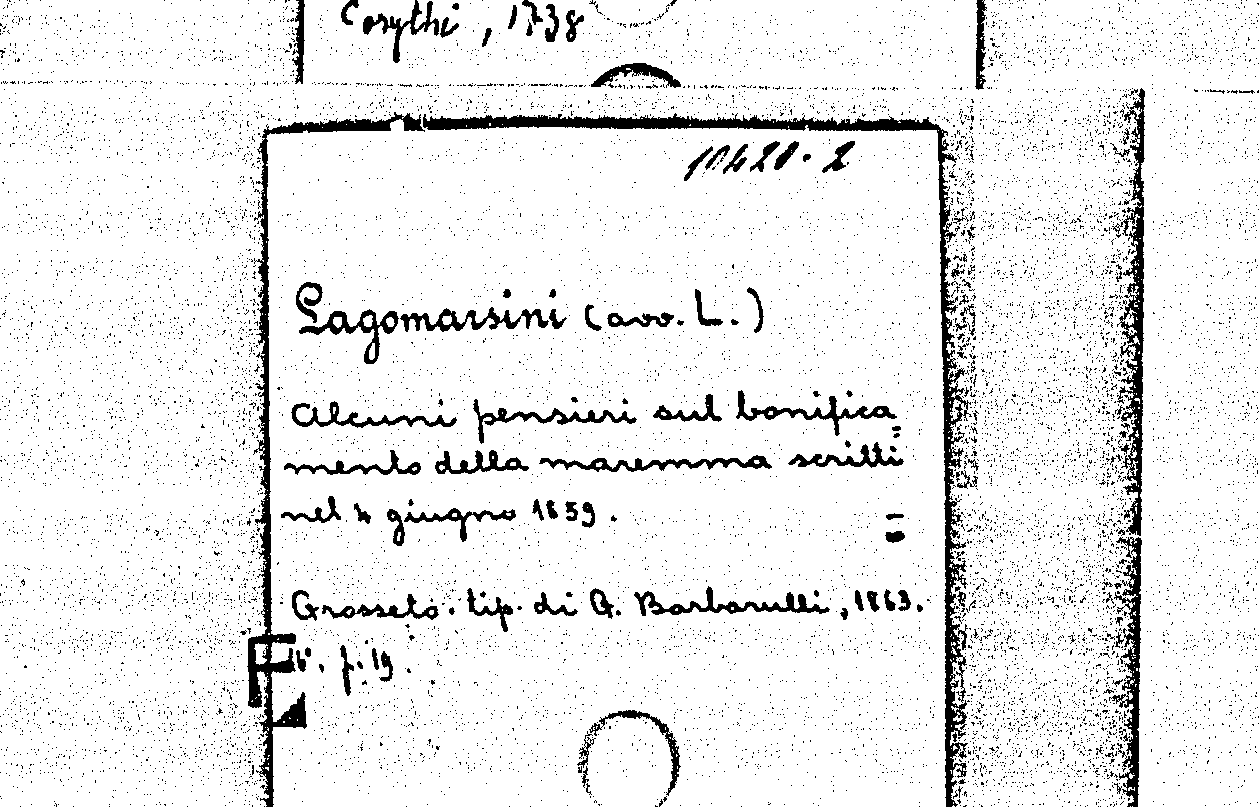 Corythi, 1738
10420.2
Lagomarsini (avv. L.)
Alcuni pensieri sul bonifica=
mento della maremma scritti
nel 4 giugno 1859.
Grosseto. tip. di G. Barbarulli, 1863.
16°. p. 19.